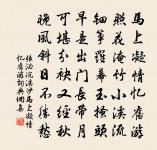 馬上凝情憶舊游
照花淹竹小溪流
鈿箏羅幕玉搔頭
早是出門長帶月
可堪分袂又經秋
晚風斜日不勝愁
張泌浣溪沙馬上凝情
憶舊游詞典網集